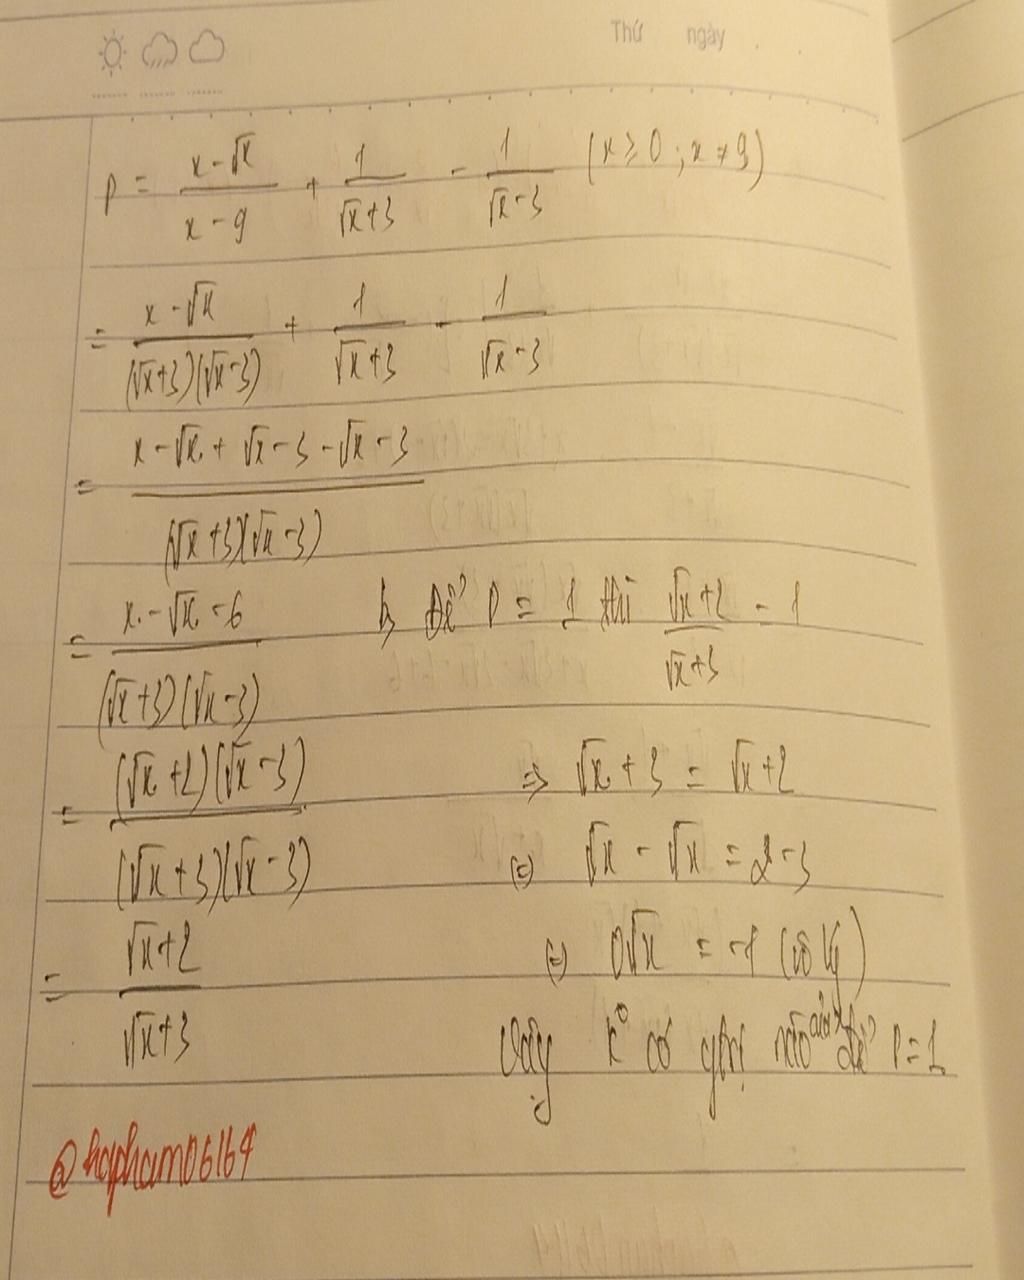 Thứ ngày
P = \frac{x-\sqrt{x}}{x-9} + \frac{1}{\sqrt{x}+3} - \frac{1}{\sqrt{x}-3} (x ≥ 0 ; x ≠ 9)
= \frac{x-\sqrt{x}}{(\sqrt{x}+3)(\sqrt{x}-3)} + \frac{1}{\sqrt{x}+3} - \frac{1}{\sqrt{x}-3}
= \frac{x-\sqrt{x}+\sqrt{x}-3-\sqrt{x}-3}{(\sqrt{x}+3)(\sqrt{x}-3)}
= \frac{x-\sqrt{x}-6}{(\sqrt{x}+3)(\sqrt{x}-3)}
= \frac{(\sqrt{x}+2)(\sqrt{x}-3)}{(\sqrt{x}+3)(\sqrt{x}-3)}
= \frac{\sqrt{x}+2}{\sqrt{x}+3}
b, Để P = 1 thì \frac{\sqrt{x}+2}{\sqrt{x}+3} = 1
=> \sqrt{x}+3 = \sqrt{x}+2
(=) \sqrt{x} - \sqrt{x} = 2-3
(=) 0\sqrt{x} = -1 (vô lý)
Vậy k° có gtrị nào của x để P = 1
@hapham06164